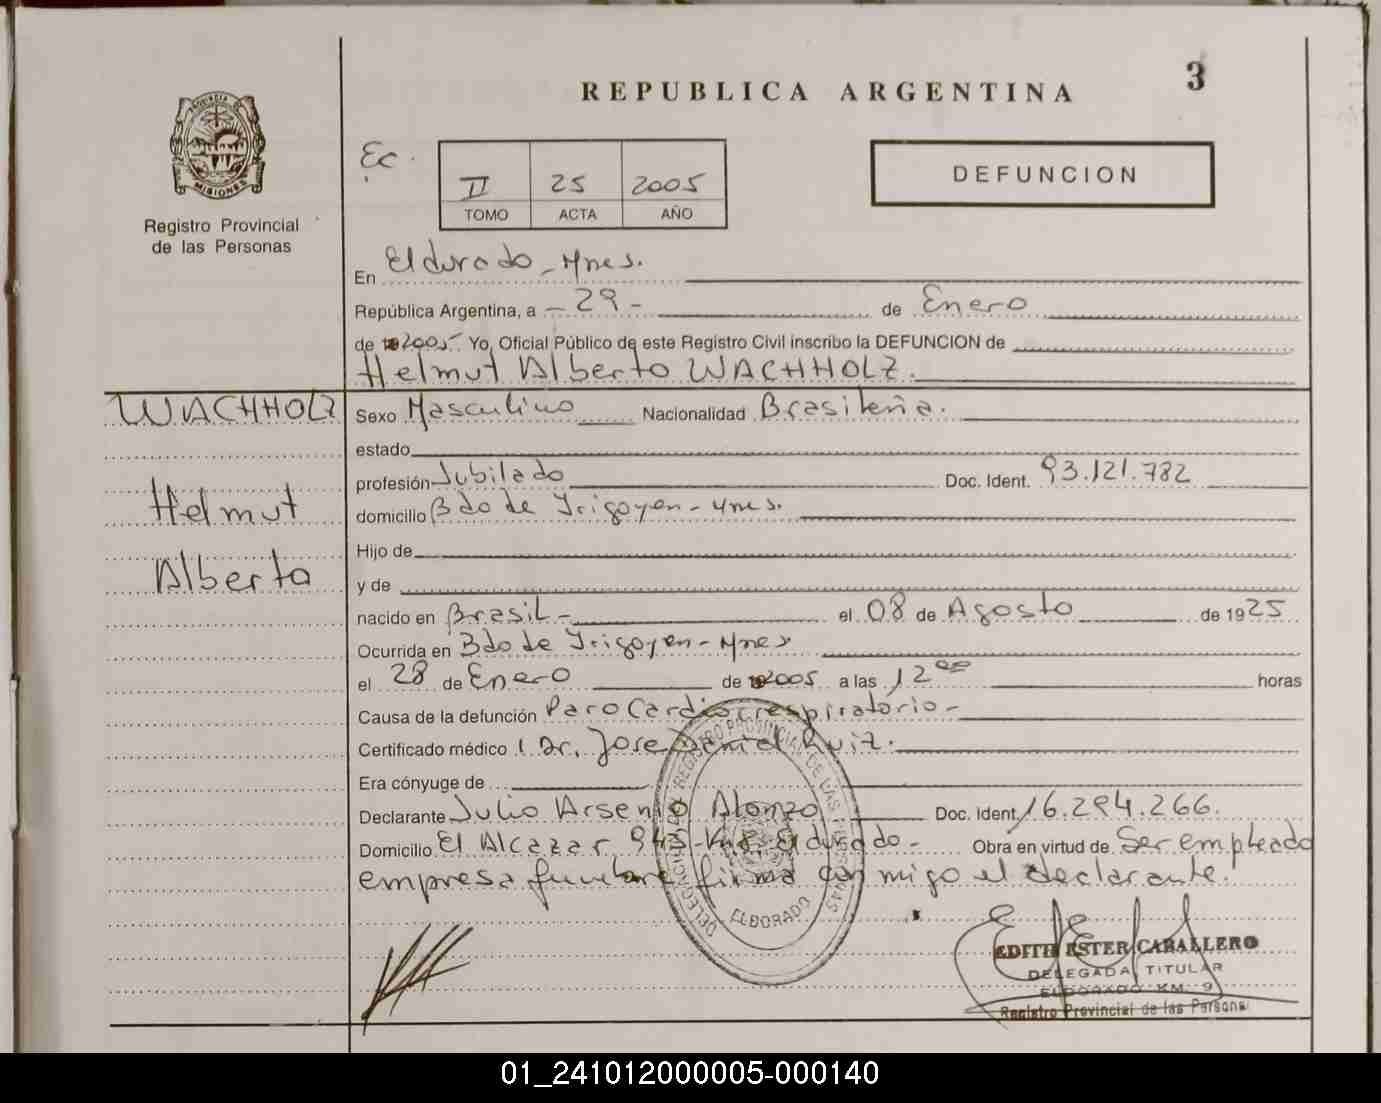 REPUBLICA ARGENTINA
3
PROVINCIA DE
MISIONES
Registro Provincial
de las Personas
Ec.
II 25 2005
TOMO ACTA AÑO
DEFUNCION
En Eldorado - Mnes.
República Argentina, a - 29 - de Enero
de 2005 Yo, Oficial Público de este Registro Civil inscribo la DEFUNCION de
Helmut Alberto WACHHOLZ.
WACHHOLZ
Helmut
Alberto
Sexo Masculino Nacionalidad Brasileña.
estado
profesión Jubilado Doc. Ident. 93.121.782
domicilio Bdo de Irigoyen - Mnes.
Hijo de
y de
nacido en Brasil - el 08 de Agosto de 1925
Ocurrida en Bdo de Irigoyen - Mnes
el 28 de Enero de 2005 a las 12 00 horas
Causa de la defunción Paro Cardiorrespiratorio -
Certificado médico Dr. Jose Daniel Ruiz.
Era cónyuge de
Declarante Julio Arsenio Alonzo Doc. Ident. 16.294.266.
Domicilio El Alcazar 943 - Km 8. Eldorado - Obra en virtud de Ser empleado
empresa funebre firma conmigo el declarante.
REGISTRO PROVINCIAL DE LAS PERSONAS
DELEGACION
ELDORADO
EDITH ESTER CABALLERO
DELEGADA TITULAR
ELDORADO KM. 9
Registro Provincial de las Persona
01_241012000005-000140